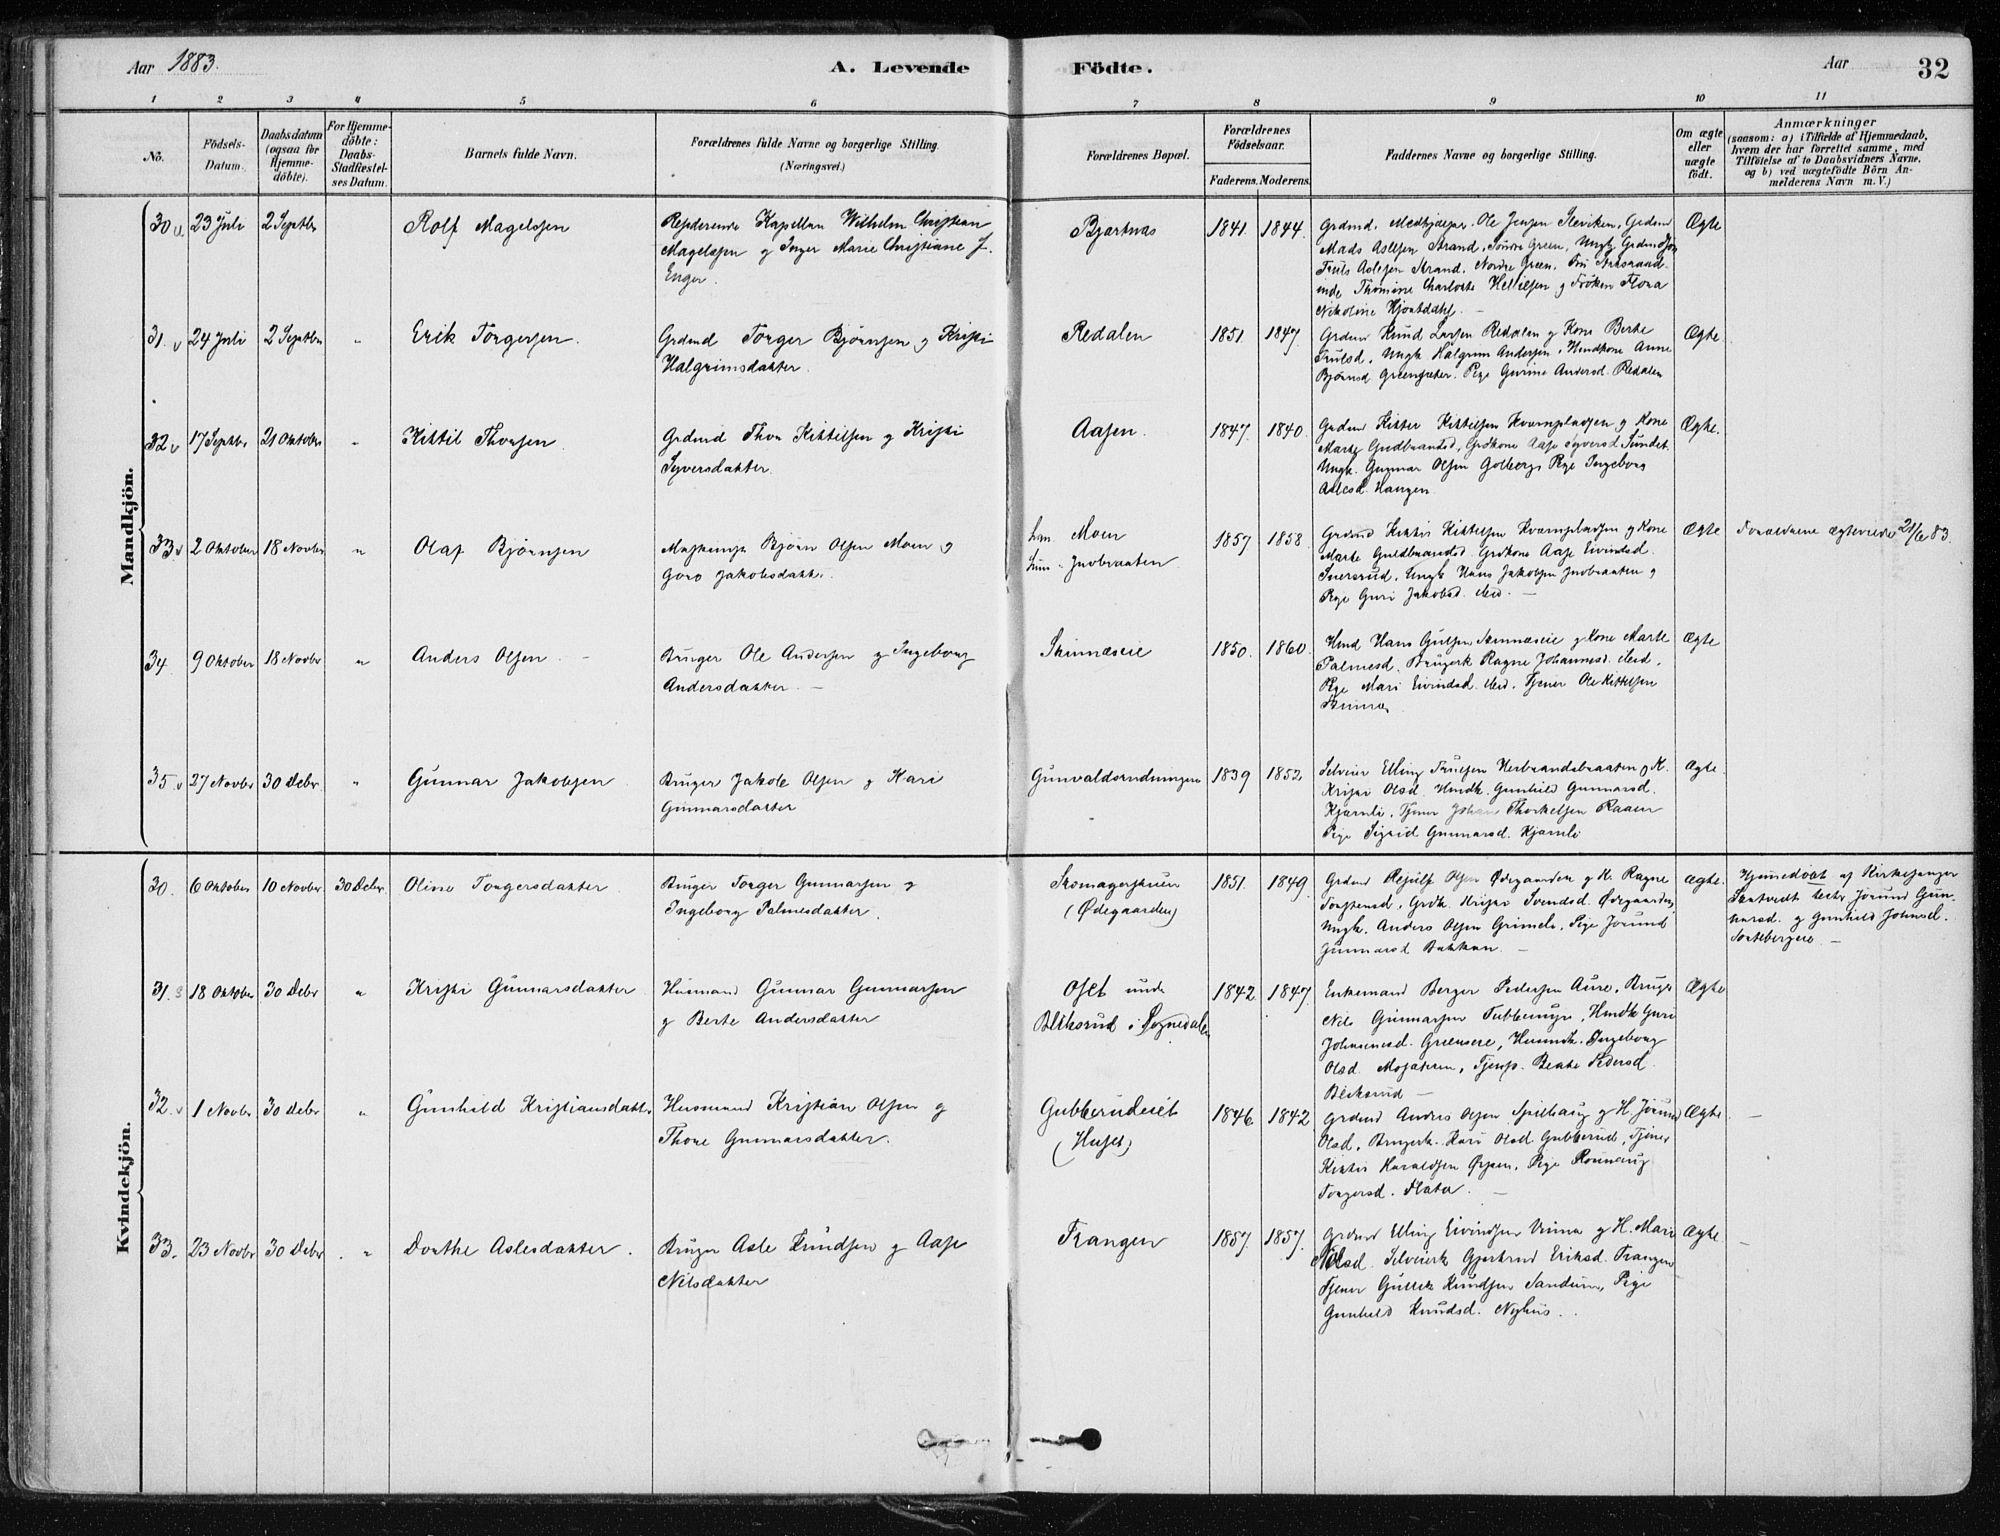 Aar 1883.
A. Levende Födte.
Aar
32
1 2 3 4 5 6 7 8 9 10 11
No.
Födsels-Datum.
Daabsdatum (ogsaa for Hjemme-döbte).
For Hjemme-döbte: Daabs-Stadfæstel-ses Datum.
Barnets fulde Navn.
Forældrenes fulde Navne og borgerlige Stilling. (Næringsvei.)
Forældrenes Bopæl.
Forældrenes Födselsaar.
Faderens. Moderens.
Faddernes Navne og borgerlige Stilling.
Om ægte eller uægte födt.
Anmærkninger
(saasom: a) i Tilfælde af Hjemmedaab,
hvem der har forrettet samme, med
Tilföielse af to Daabsvidners Navne,
og b) ved uægtefödte Börn An-
melderens Navn m. V.)
Mandkjön.
30 23 Juli 2 Septbr Rolf Magelssen
Residerende Kapellan Wilhelm Christian
Magelssen og Inger Marie Christiane J.
Enger.
Bjertnæs 1841. 1844.
Grdmd. Medhjælper Ole Jensen Sleviken, Grdmd
Mads Aslesen Strand, Søndre Green, Ungk.
Truls Aslesen Strand, Nordre Green,
Thomine Charlotte Hellesen og Frøken Flora
Nikoline Hjortdahl. —
Ægte
31. 24 Juli 2 Septbr " Erik Torgersen.
Grdmd Torger Bjørnsen og Kristi
Halgrimsdatter.
Redalen 1851. 1847.
Grdmd Knud Larsen Redalen og Kone Berte
Trulsd., Ungk. Halgrim Andersen, Hmdkone Anne
Bjørnsd Greensæter, Pige Gurine Andersd. Redalen
Ægte.
32 17 Septbr 21 Oktober " Kittil Thorsen.
Grdmd Thor Kittilsen og Kristi
Syversdatter.
Aasen. 1847. 1840.
Grdmd Kittil Kittelsen Kvernpladsen og Kone
Marte Guldbrandsd, Grdkone Aase Syversd Sundet.
Ungk. Gunnar Olsen Golberg, Pige Ingeborg
Aslesd. Haugen.
Ægte.
33. 2 Oktober 18 Novbr " Olaf Bjørnsen
Bjørn Olsen Moen og
Goro Jakobsdatt.
ham Moen
hun - Jnobraaten
1857 1858.
Grdmd Kittil Kittelsen Kvernpladsen og Kone
Marte Guldbrandsd, Grdkone Aase Eivindsd.
Sversrud, Ungk Hans Jakobsen Jnobraaten og
Pige Guri Jakobsd. ibid. —
Ægte Forældrene ægteviede 21/6 83.
34. 9 Oktober 18 Novbr " Anders Olsen —
Bruger Ole Andersen og Ingeborg
Andersdatter. —
Skinnæseie 1850. 1860.
Hmd Hans Gulsen Skinnæseie og Kone Marte
Palmesd. Brugerk Ragne Johannesd. ibid,
Pige Mari Eivindsd. ibid, Tjener Ole Kittelsen
Skinnæs
Ægte
35 27 Novbr 30 Debr " Gunnar Jakobsen
Bruger Jakob Olsen og Kari
Gunnarsdatter
1839 1852
Selveier Elling Trulsen Herbrandsbraaten og K.
Kristi Olsd. Hmdk. Gunhild Gunnarsd.
Kjærnli, Tjener Johan Thorkelsen Raaen
Pige Sigrid Gunnarsd. Kjærnli
Ægte.
Kvindekjön.
30. 6 Oktober 10 Novbr 30 Debr. Oline Torgersdatter
Bruger Torger Gunnarsen og
Ingeborg Palmesdatter.
Skomagerstuen
(Ødegaarden)
1851. 1849.
Grdmd Olsen Ødegaarden og K. Ragne
Torstensd, Grdk. Kristi Svendsd. Ødegaarden,
Ungk. Anders Olsen Grimeli, Pige Jorund
Gunnarsd Bakken. —
Ægte.
Hjemmedøbt af Kirkesanger
Jorund Gun-
narsd. og Gunhild Johnsd.
—
31. 18 Oktober 30 Debr " Kristi Gunnarsdatter.
Husmand Gunnar Gunnarsen
og Berte Andersdatter
Oset under
Bliksrud i Sognedalen
1842 1847.
Enkemand Berger Pedersen Aure, Bruger
Nils Gunnarsen Gubberud, Hmdk Guri
Johannesd. Greensere, Husmdk. Ingeborg
Olsd. Tjenp. Beate Pedersd.
Bliksrud —
Ægte
32. 1 Novbr 30 Debr " Gunhild Kristiansdatt.
Husmand Kristian Olsen og
Thone Gunnarsdatter.
Gubberudeiet
(Huset)
1846. 1842
Grdmd Anders Olsen Spilhaug og H. Jorund
Olsd, Brugerk. Kari Olsd Gubberud, Tjener
Kittil Haraldsen Ørpen, Pige Rønnaug
Torgersd. Flata. —
Ægte —
33. 23 Novbr 30 Debr. " Dorthe Aslesdatter.
Bruger Asle Knudsen og Aase
Nilsdatter
Trangen 1857. 1857.
Grdmd Elling Eivindsen og H. Mari
Nilsd. Selveierk Gjertrud Eriksd. Trangen
Tjener Gullik Knudsen Sandum, Pige
Gunhild Knudsd. Nyhus.
Ægte. —